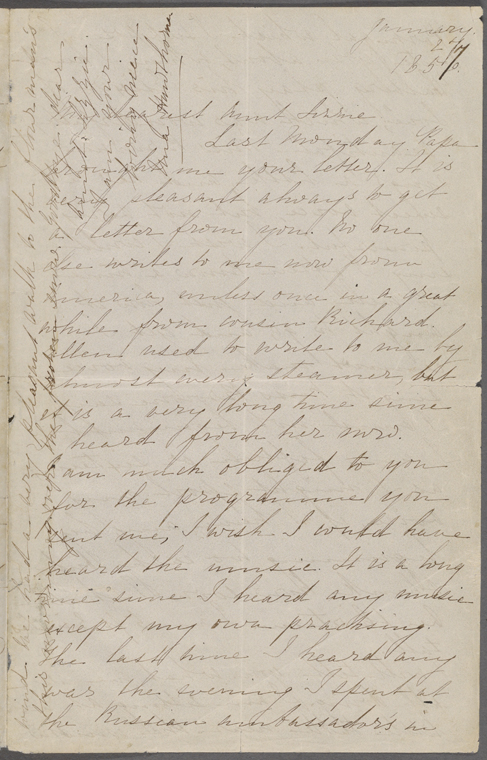 January
27th
185
My dearest aunt Lizzie
Last Monday Papa
brought me your letter. It is
very pleasant always to get
a letter from you. No one
else writes to me now from
America, unless once in a great
while from cousin Richard.
Ellen used to write to me by
almost every steamer, but
it is a very long time since
I heard from her now.
I am much obliged to you
for the programme you
sent me; I wish I could have
heard the music. It is a long
time since I heard any music
except my own practising.
The last time I heard any
was the evening I spent at
the Russian ambassador's in
had a very pleasant walk in the
Goodbye dear
aunt Lizzie.
I am your
loving niece
Una Hawthorne